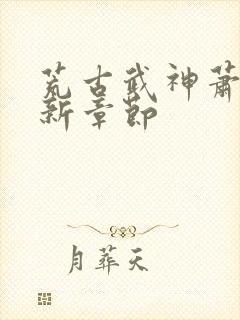 荒古武神萧
新章节
月葬天